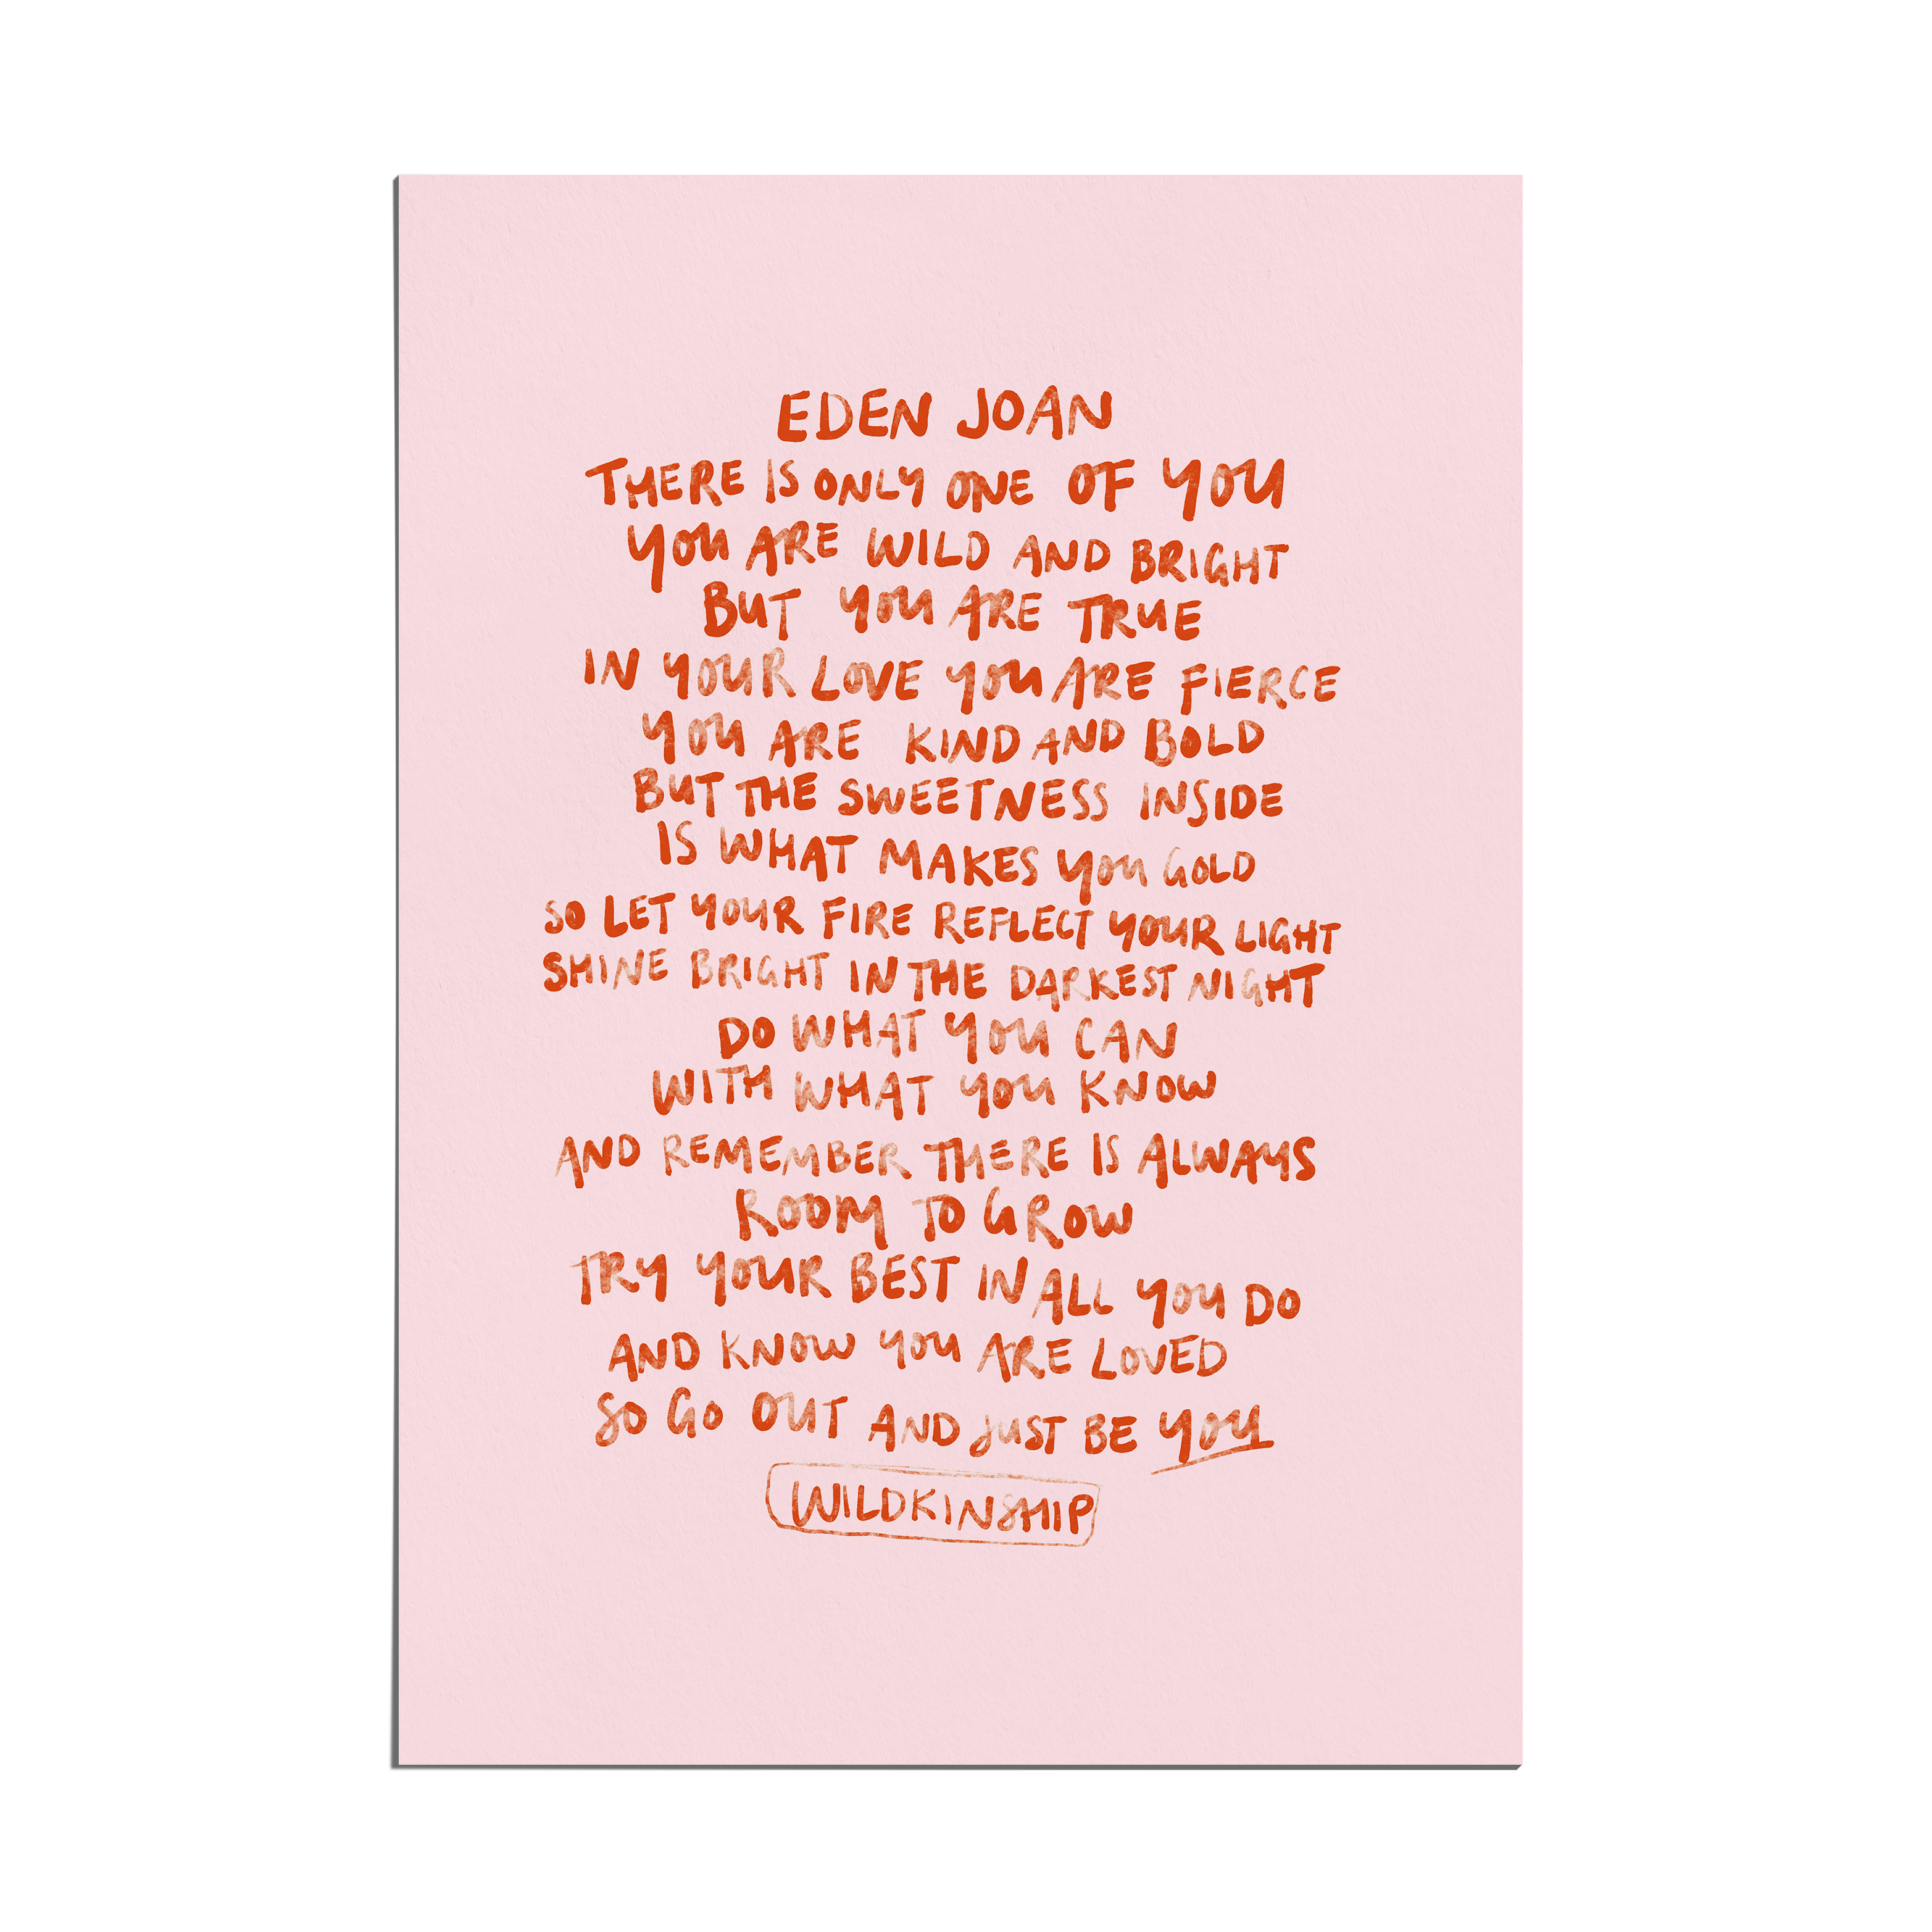 EDEN JOAN
THERE IS ONLY ONE OF YOU
YOU ARE WILD AND BRIGHT
BUT YOU ARE TRUE
IN YOUR LOVE YOU ARE FIERCE
YOU ARE KIND AND BOLD
BUT THE SWEETNESS INSIDE
IS WHAT MAKES YOU GOLD
SO LET YOUR FIRE REFLECT YOUR LIGHT
SHINE BRIGHT IN THE DARKEST NIGHT
DO WHAT YOU CAN
WITH WHAT YOU KNOW
AND REMEMBER THERE IS ALWAYS
ROOM TO GROW
TRY YOUR BEST IN ALL YOU DO
AND KNOW YOU ARE LOVED
SO GO OUT AND JUST BE YOU
WILDKINSHIP